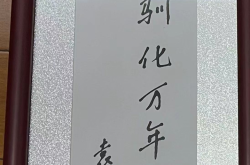 驯化万年
袁